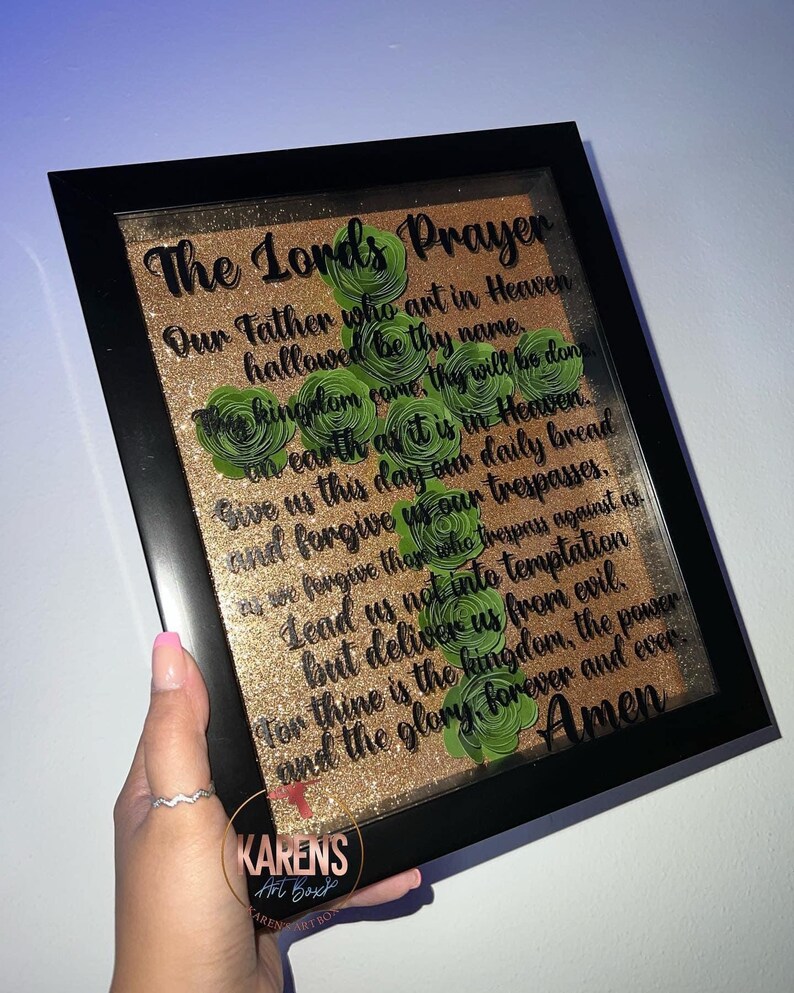 The Lords Prayer
Our Father who art in Heaven
hallowed be thy name.
Thy kingdom come, thy will be done,
on earth as it is in Heaven.
Give us this day our daily bread
and forgive us our trespasses,
as we forgive those who trespass against us.
Lead us not into temptation
but deliver us from evil.
For thine is the kingdom, the power
and the glory, forever and ever.
Amen
KAREN'S
Art Box
KAREN'S ART BOX